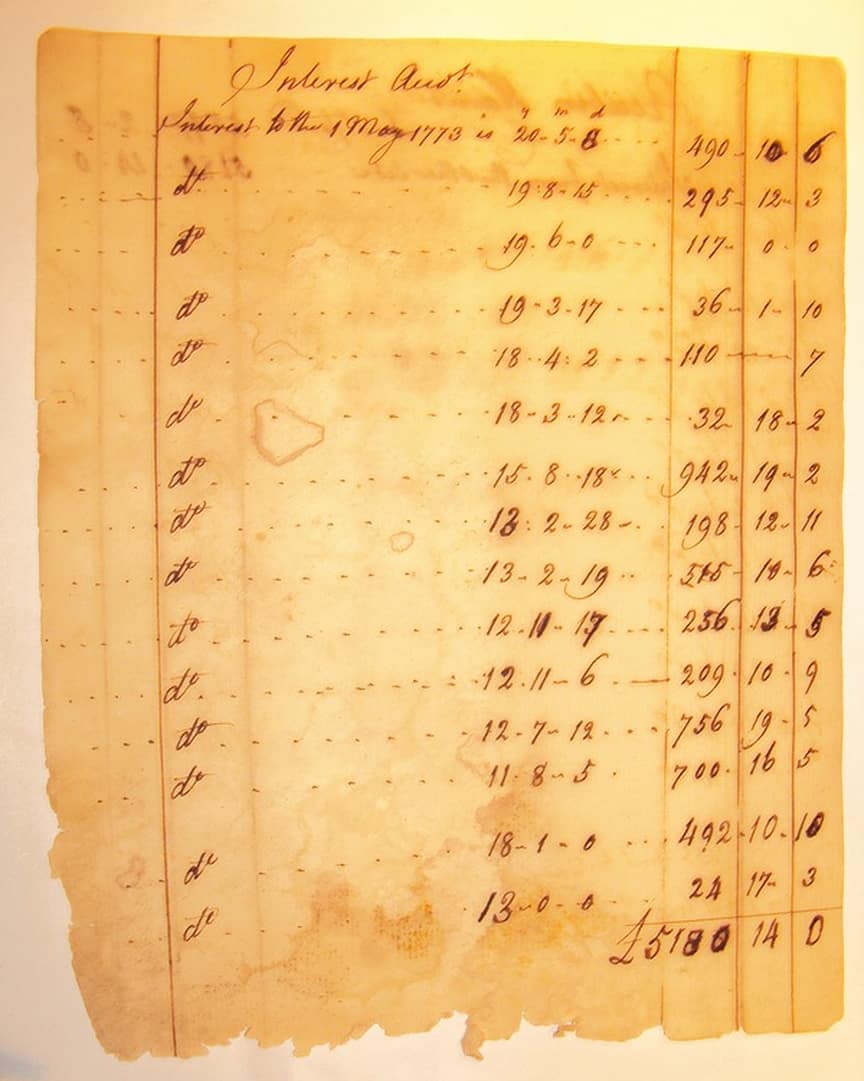 Interest Accot
y m d
Interest to the 1 May 1773 is 20-5-8 .... 490 - 10 6
do 19-8-15 .... 295- 12- 3
do 19-6-0 --- 117- 0 - 0
do 19-3-17 --- 36- 1- 10
do 18-4-2 --- 110 ---- 7
do 18-3-12 .... 32 18- 2
do 15-8-18 ... 942 19- 2
do 13-2-28 .. 198- 12- 11
do 13-2-19 .. 515- 18- 6
do 12-11-17 .... 256 13- 5
do 12-11-6 — 209 10- 9
do 12-7-12 ... 756 19- 5
do 11-8-5 . 700 16 5
do 18-1-0 ... 492-10-10
do 13-0-0 24 17- 3
£5180 14 0